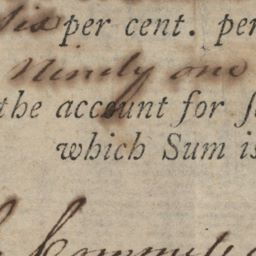 Six per cent. per
Ninety one
the account for
which Sum is